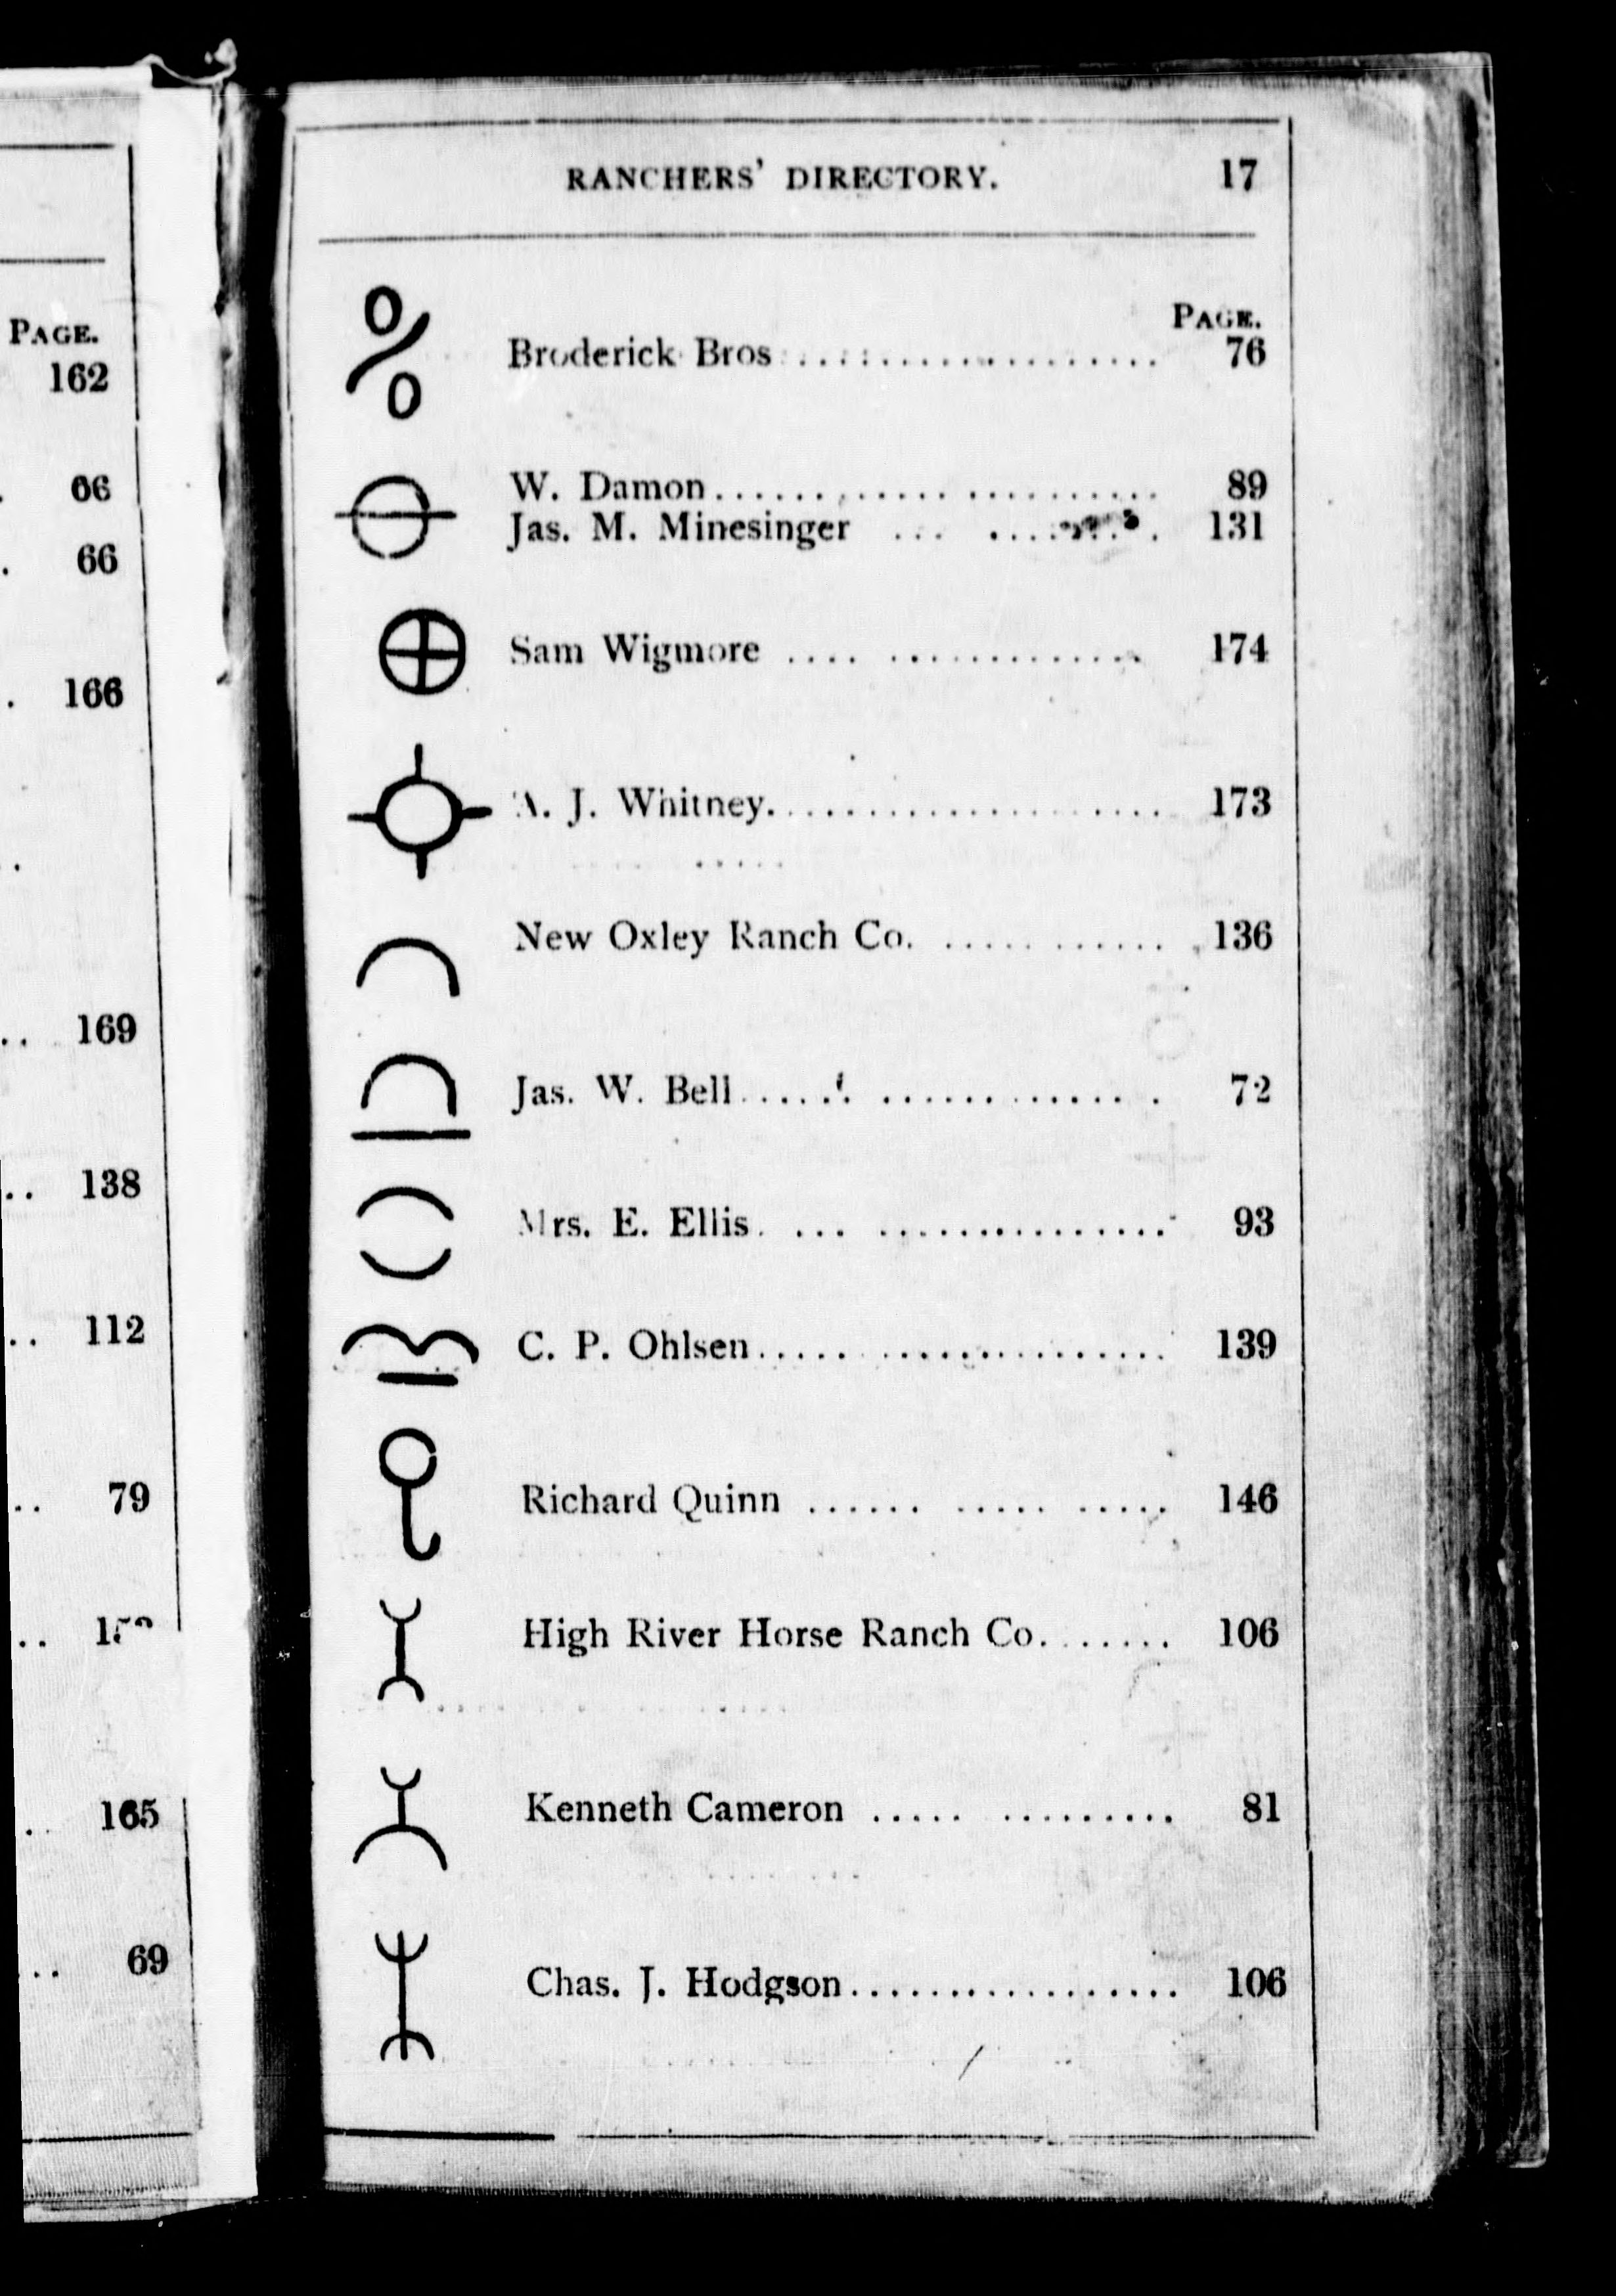 PAGE.
162
66
66
166
169
138
112
79
165
69
RANCHERS' DIRECTORY. 17
PAGE.
Broderick Bros .................... 76
W. Damon........................ 89
Jas. M. Minesinger ... ........ 131
Sam Wigmore .... ............. 174
A. J. Whitney..................... 173
New Oxley Ranch Co. ............ 136
Jas. W. Bell...... .............. 72
Mrs. E. Ellis. ... ............... 93
C. P. Ohlsen..................... 139
Richard Quinn ...... ..... ..... 146
High River Horse Ranch Co....... 106
Kenneth Cameron ..... ......... 81
Chas. J. Hodgson.................. 106